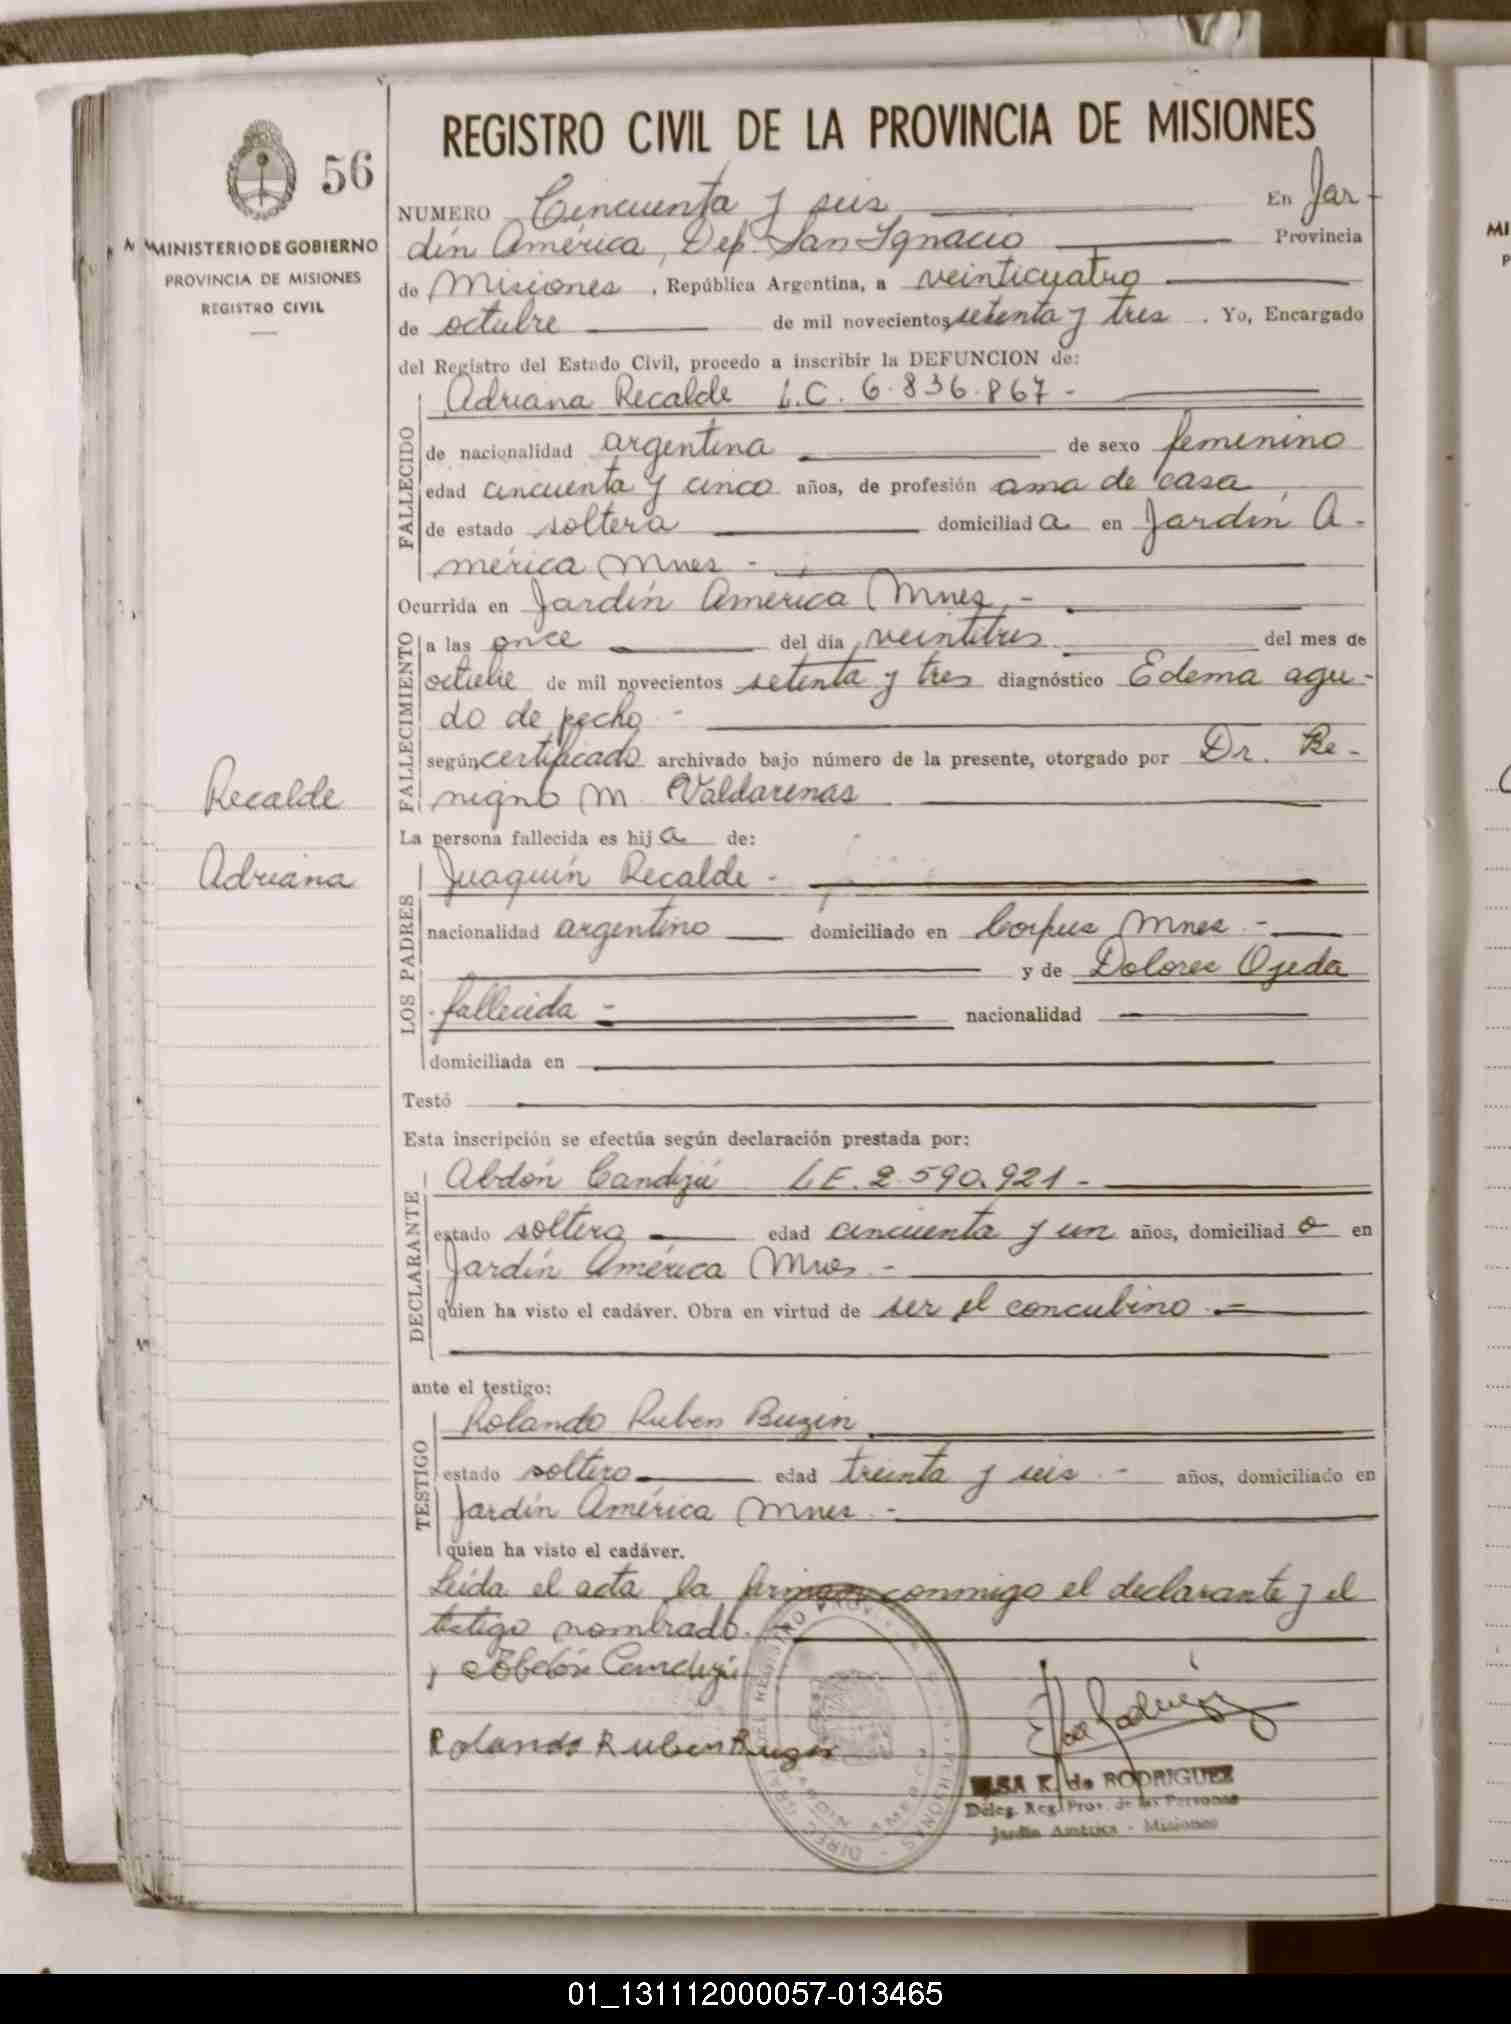 56
MINISTERIO DE GOBIERNO
PROVINCIA DE MISIONES
REGISTRO CIVIL
REGISTRO CIVIL DE LA PROVINCIA DE MISIONES
NUMERO Cincuenta y seis En Jar-
dín América, Dep. San Ignacio Provincia
de Misiones, República Argentina, a veinticuatro
de octubre de mil novecientos setenta y tres. Yo, Encargado
del Registro del Estado Civil, procedo a inscribir la DEFUNCION de:
FALLECIDO
Adriana Recalde L.C. 6.836.867-
de nacionalidad argentina de sexo femenino
edad cincuenta y cinco años, de profesión ama de casa
de estado soltera domiciliada en Jardín A-
mérica Mnes -
Ocurrida en Jardín América Mnes -
FALLECIMIENTO
a las once del día veintitres del mes de
octubre de mil novecientos setenta y tres diagnóstico Edema agu-
do de pecho -
según certificado archivado bajo número de la presente, otorgado por Dr. Be-
nigno M. Valdarenas
Recalde
Adriana
La persona fallecida es hija de:
LOS PADRES
Juaquín Recalde -
nacionalidad argentino domiciliado en Corpus Mnes -
y de Dolores Ojeda
fallecida - nacionalidad
domiciliada en
Testó
Esta inscripción se efectúa según declaración prestada por:
DECLARANTE
Abdón Candizú L.E. 2.590.921-
estado soltero edad cincuenta y un años, domiciliado en
Jardín América Mnes -
quien ha visto el cadáver. Obra en virtud de ser el concubino. -
ante el testigo:
TESTIGO
Rolando Ruben Buzin
estado soltero edad treinta y seis - años, domiciliado en
Jardín América Mnes -
quien ha visto el cadáver.
Leída el acta la firman conmigo el declarante y el
testigo nombrado.
Abdón Candizú
Rolando Ruben
ELSA K. de RODRIGUEZ
Deleg. Reg. Prov. de las Personas
Jardín América - Misiones
01_131112000057-013465